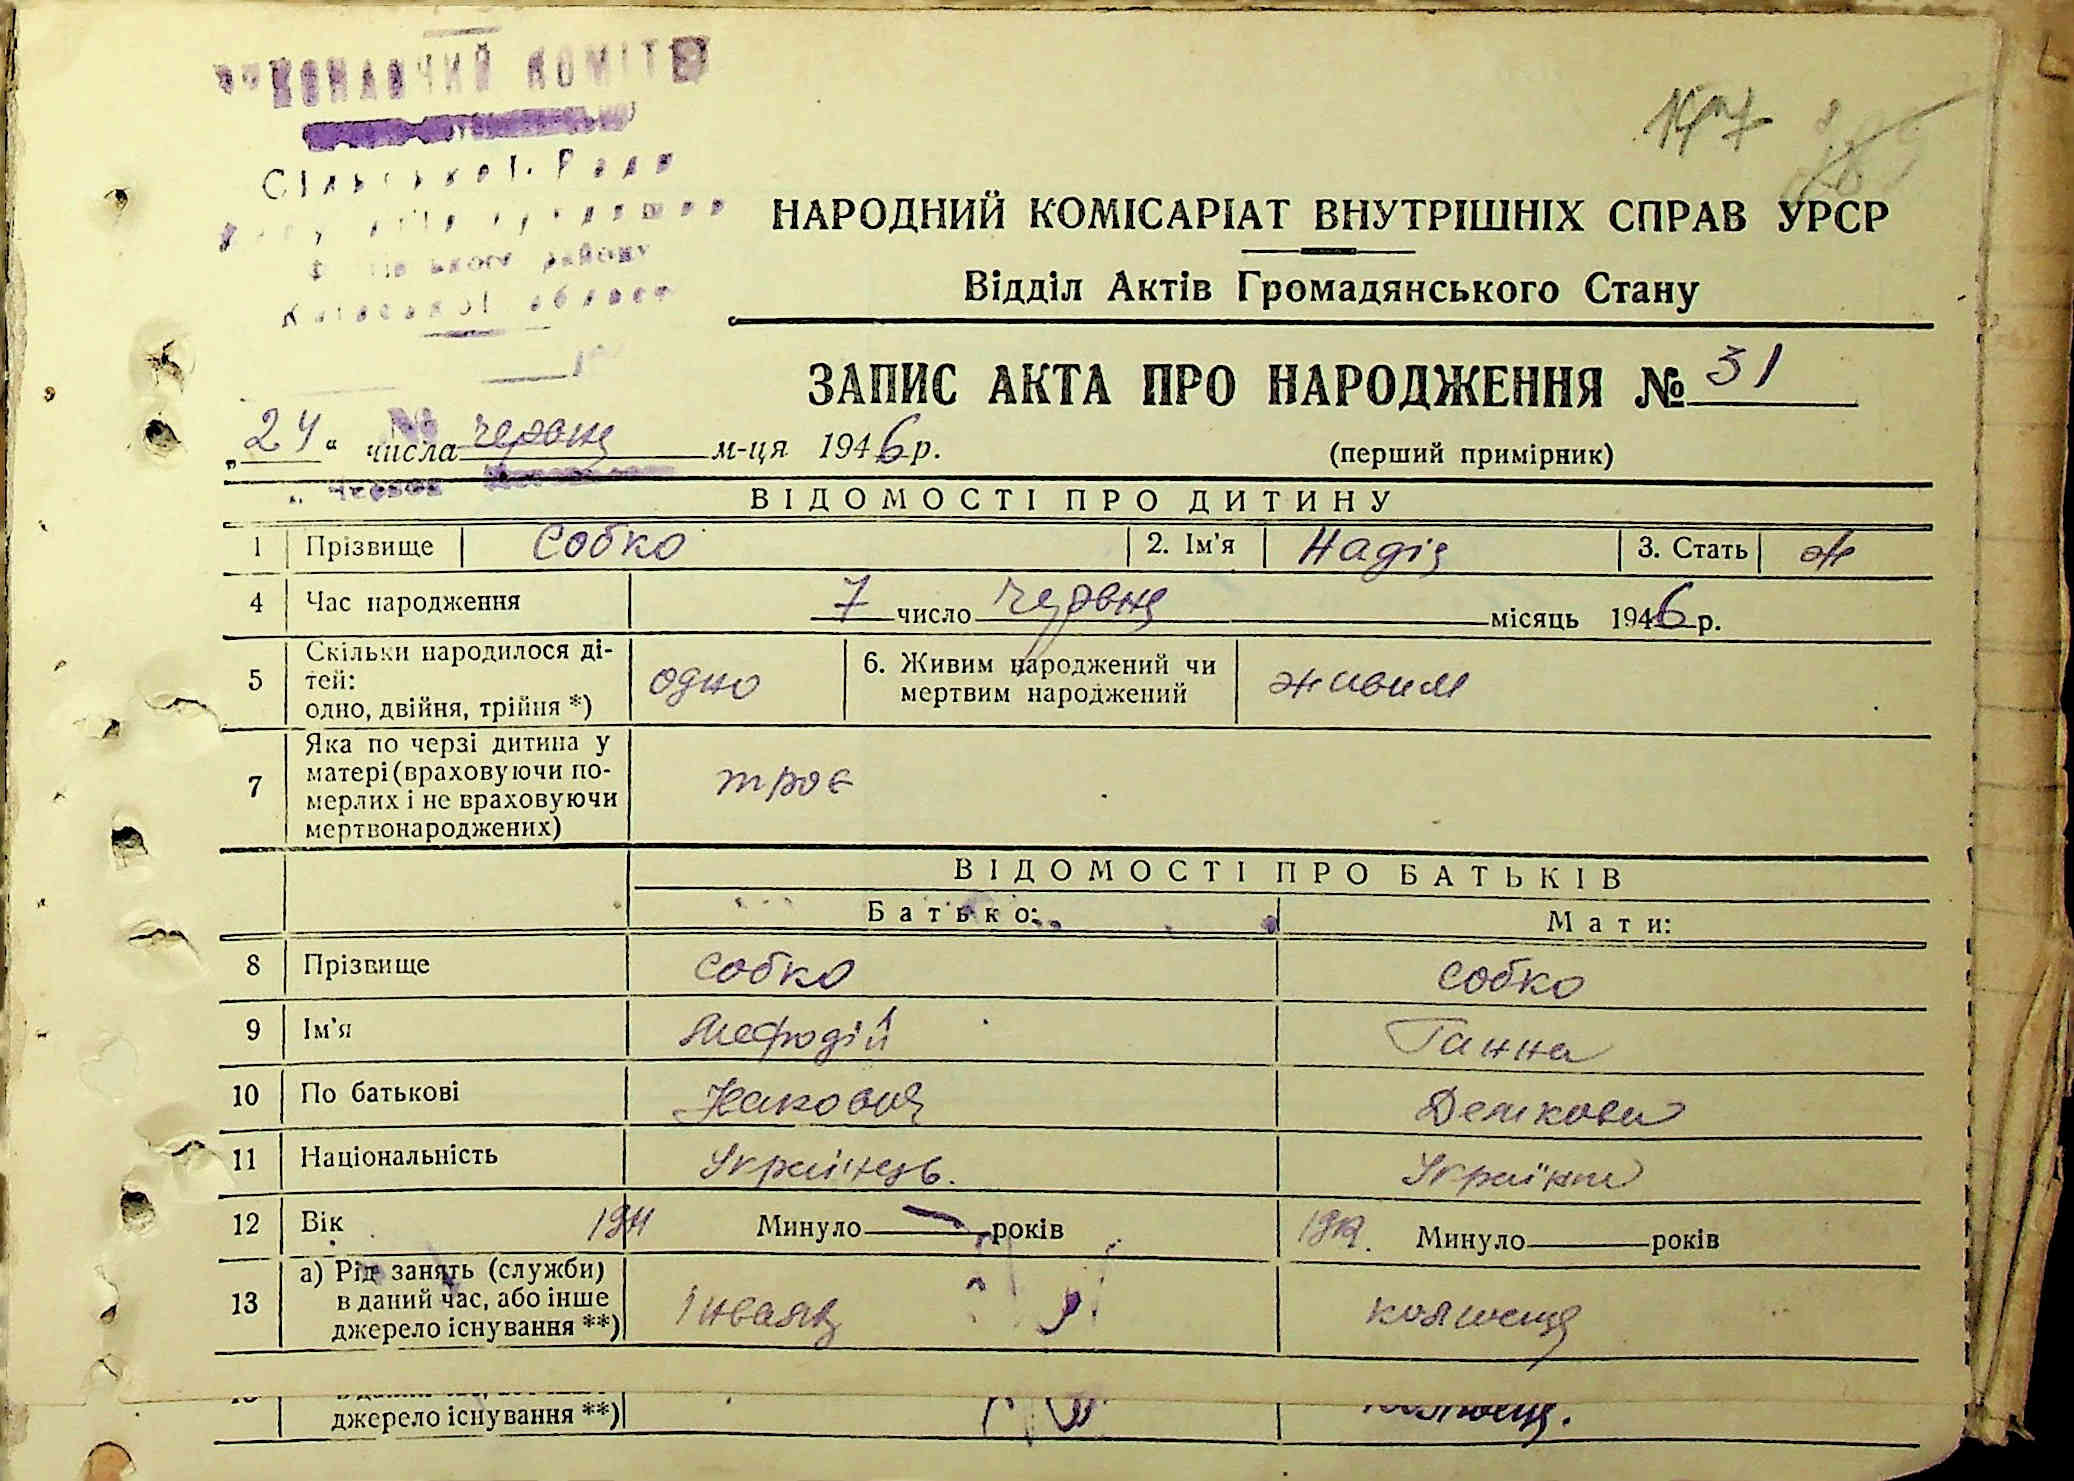 Сільської Ради
району
Київської област
147
НАРОДНИЙ КОМІСАРІАТ ВНУТРІШНІХ СПРАВ УРСР
Відділ Актів Громадянського Стану
ЗАПИС АКТА ПРО НАРОДЖЕННЯ № 31
„24“ числа червня м-ця 1946 р.
(перший примірник)
ВІДОМОСТІ ПРО ДИТИНУ
1 Прізвище Собко 2. Ім'я Надія 3. Стать ж
4 Час народження 7 число червня місяць 1946 р.
5 Скільки народилося ді-
тей:
одно, двійня, трійня *) одно
6. Живим народжений чи
мертвим народжений живим
7 Яка по черзі дитина у
матері (враховуючи по-
мерлих і не враховуючи
мертвонароджених) троє
ВІДОМОСТІ ПРО БАТЬКІВ
Батько: Мати:
8 Прізвище Собко Собко
9 Ім'я Мефодій Ганна
10 По батькові
11 Національність Українець. Українка
12 Вік 1911 Минуло — років 1919. Минуло років
13 а) Рід занять (служби)
в даний час, або інше
джерело існування **) Інвалід колгоспц
джерело існування **)